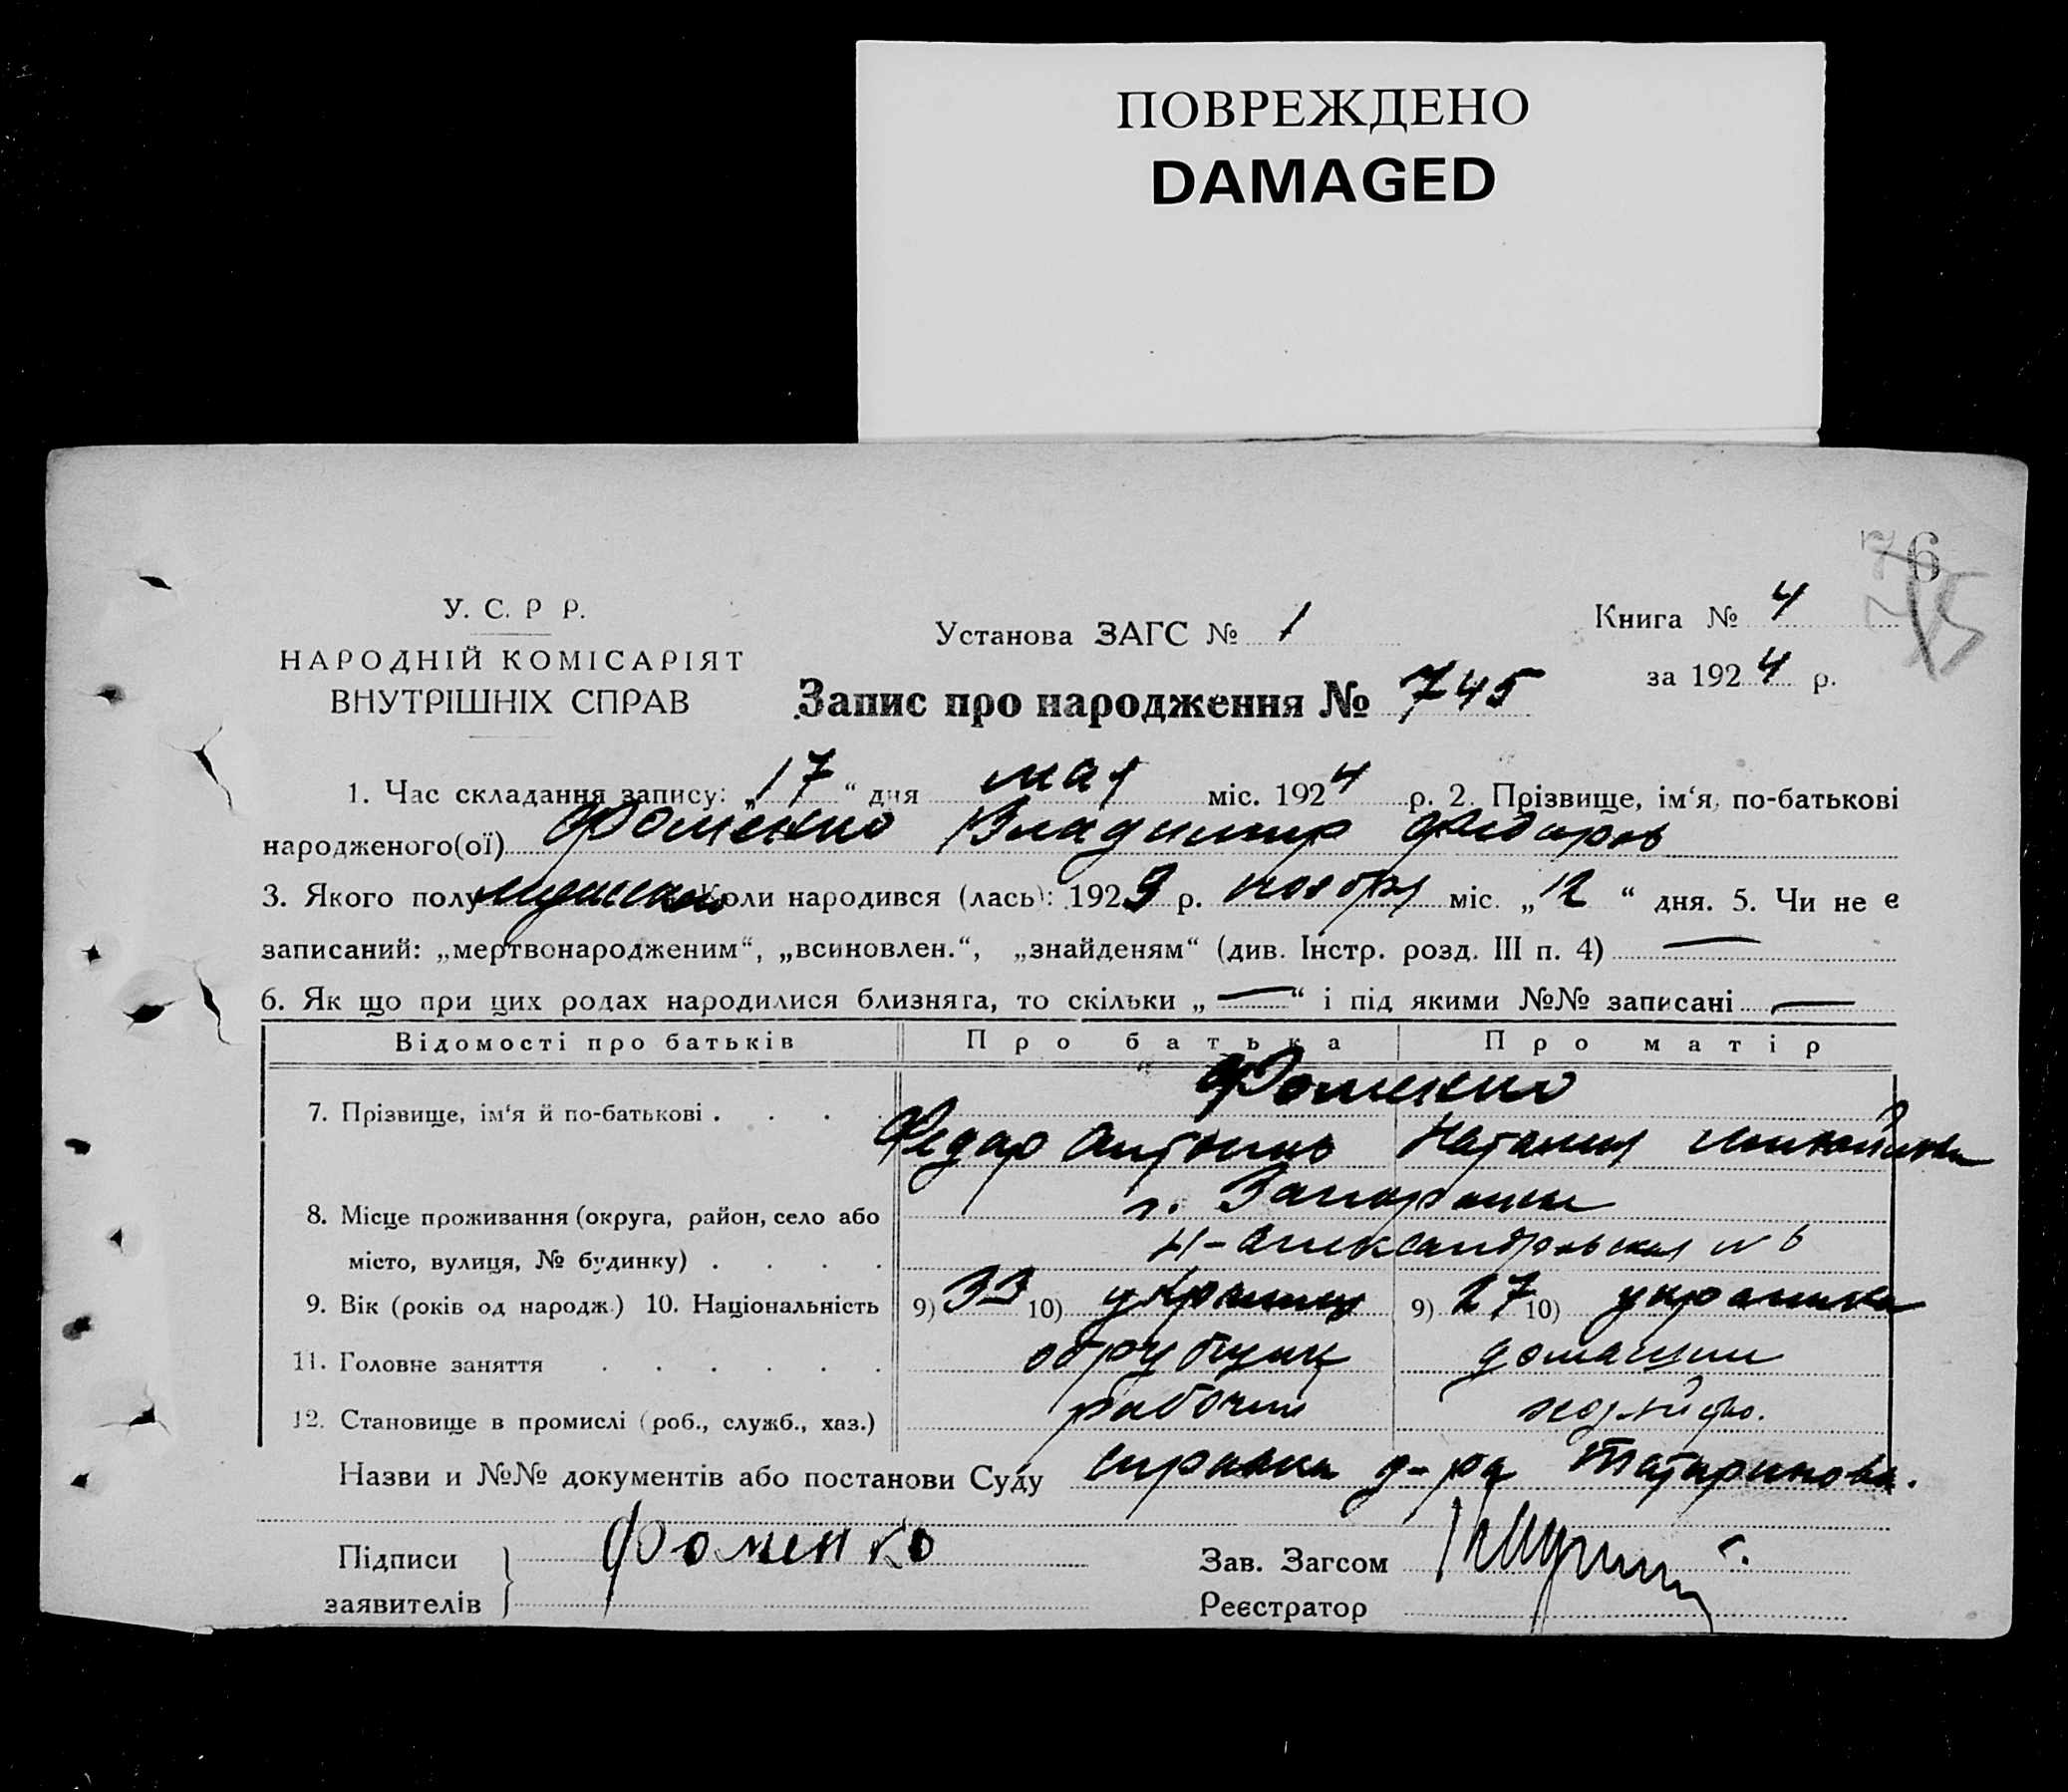 ПОВРЕЖДЕНО
DAMAGED
6
У. С. Р Р.
НАРОДНІЙ КОМІСАРІЯТ
ВНУТРІШНІХ СПРАВ
Установа ЗАГС № 1
Запис про народження № 745
Книга № 4
за 1924 р.
1. Час складання запису: „17“ дня мая міс. 1924 р. 2. Прізвище, ім‘я, по-батькові
народженого(ої) Фоменко Владимир Федоров
3. Якого полу мужского Коли народився (лась): 1923 р. ноября міс. „12“ дня. 5. Чи не є
записаний: „мертвонародженим“, „всиновлен.“, „знайденям“ (див. Інстр. розд. III п. 4) —
6. Як що при цих родах народилися близняга, то скільки „—“ і під якими №№ записані —
Відомості про батьків Про батька Про матір
Фоменко
7. Прізвище, ім‘я й по-батькові . . . .
Федор Антонов Наталия
г. Запорожье
8. Місце проживання (округа, район, село або
місто, вулиця, № будинку) . . . .
Н-Александровская № 6
9. Вік (років од народж.) 10. Національність 9) 33 10) украинец 9) 27 10) украинка
11. Головне заняття . . . . . . обрубщик домашнее
12. Становище в промислі (роб., служб., хаз.) рабочий хозяйство.
Назви и №№ документів або постанови Суду справка д-ра Татаринова.
Підписи Фоменко Зав. Загсом
заявителів Реєстратор